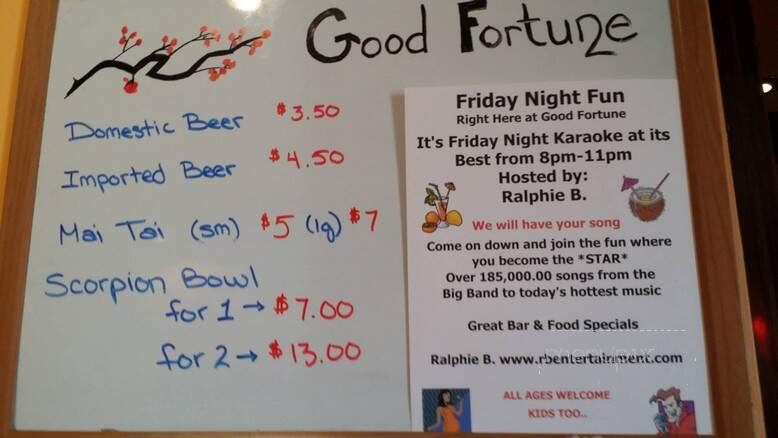 Good Fortune
Domestic Beer $3.50
Imported Beer $4.50
Mai Tai (sm) $5 (lg) $7
Scorpion Bowl
for 1 → $7.00
for 2 → $13.00
Friday Night Fun
Right Here at Good Fortune
It's Friday Night Karaoke at its
Best from 8pm-11pm
Hosted by:
Ralphie B.
We will have your song
Come on down and join the fun where
you become the *STAR*
Over 185,000.00 songs from the
Big Band to today's hottest music
Great Bar & Food Specials
Ralphie B. www.rbentertainment.com
ALL AGES WELCOME
KIDS TOO..